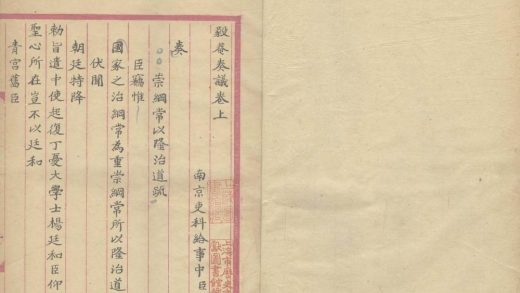 毅菴奏議卷上
南京吏科給事中臣
奏
崇綱常以隆治道疏
臣竊惟
國家之治綱常為重崇綱常所以隆治道
伏聞
朝廷特降
勅旨遣中使起復丁憂大學士楊廷和臣仰
聖心所在豈不以廷和
青宮舊臣
上海市歷史文
獻圖書館藏